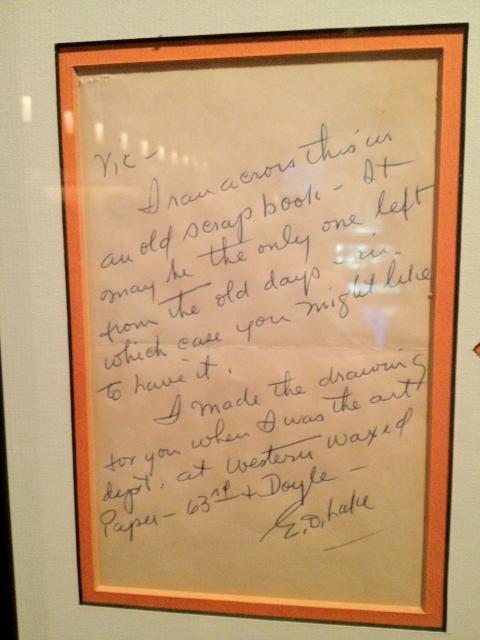 Vic -
I ran across this in
an old scrap book - It
may be the only one left
from the old days - in
which case you might like
to have it.
I made the drawing
for you when I was the art
dept. at Western Waxed
Paper - 63rd & Doyle -
E.D. Lake